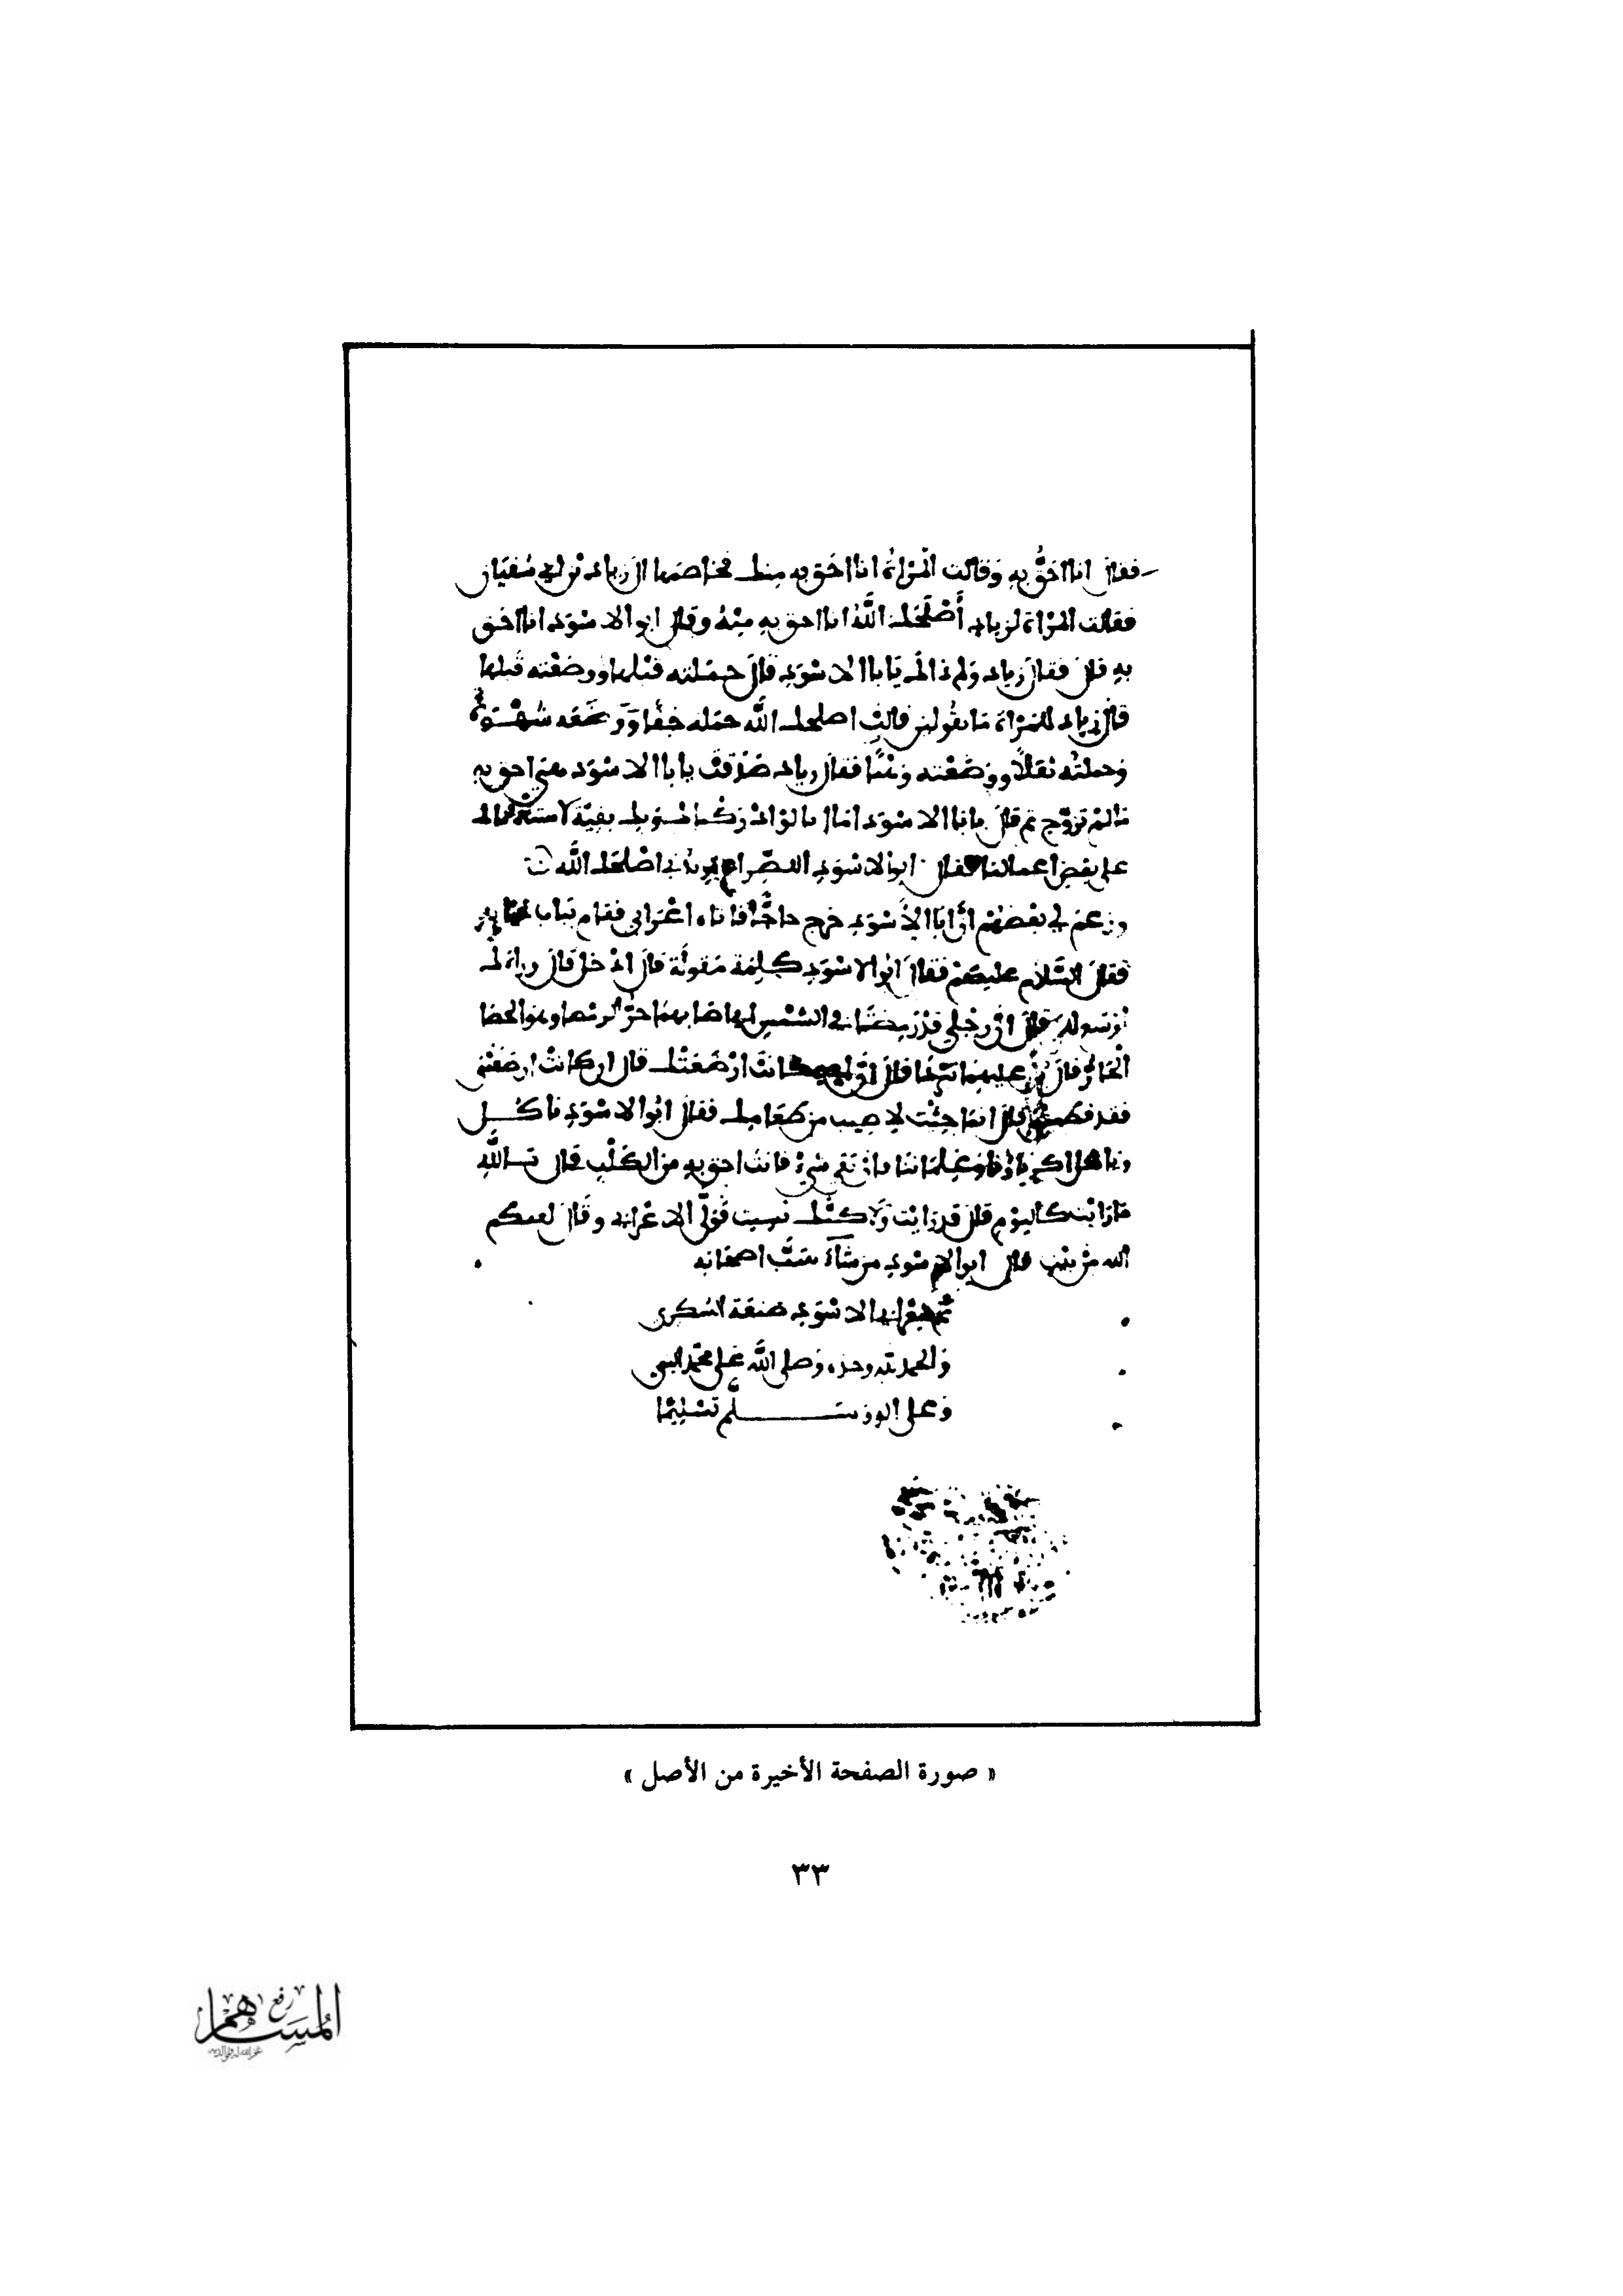 فقال انا احَقُّ بِهِ وَقالت المرْاة انا احَق به مِنك فخاصَمها الى زياد بْن ابي سُفيَان
فقالت المرْاة لزياد أَصْلَحَك اللَّهُ انا احق بهِ مِنْهُ وقال ابو الاسْوَد انا احَق
بِهِ قال فقال زياد ولم ذالك يَابا الاسْوَدِ قالَ حمَلته قبْلها ووضعْته قَبلها
قال زياد للمَرْاة مَا تقُولين قالتْ اصلحك اللَّه حمَله خِفًّا وَوَضَعَه شهْوَة
وَحملتُه ثقلًا ووَضَعْته فقال زياد صَدَقت يا بَا الاسْوَد هي احق بهِ
مَا لمْ تزوَّج ثم قالَ يا بَا الاسْوَد امَا لو ادْرَكناك وَبِك بقيَّة لاستعملناك
على بعْضِ اعمالنا فقال ابو الاسْوَدِ اللصِّراع يريدُني اصْلحَك اللَّه
وزعمَ لي بَعْضهُمْ أنَّ ابَا الأسْوَدِ خرج حاجًّا فاتاه اعْرَابي فقام بباب
فقال السَّلام عليكمْ فقال ابو الاسْوَدِ كَلِمَة مَقولَة قالَ ادْخل قال وراك
اوْسع لك قال انَّ رجْلي قدْ رَمِضَتا في الشمْسِ
قال انْ كانتْ ارضَعَتْني
فقد فطمتني قال انمَا جئْت لاصِيب من طعَامِك فقال ابُو الاسْوَدِ نَاكُل
فانتَ احَق بهِ من الكَلْبِ قال تَاللَّهِ
مَا رَايْت كاليوْمِ قال قد رَايْت وَلاكنَّك نسِيت فوَلَّى الاعْرابي وقال لعنكم
الله من بَيْتٍ قال ابو الاسْوَدِ من شَاءَ سَبَّ اصحَابه
تم شِعْر ابي الاسْوَدِ صَنعَة السُكري
وَالحمد لله وحده وَصلى اللَّه عَلى محمَّد النبي
وَعلى اله وسَلَّم تَسْلِيمًا
« صورة الصفحة الأخيرة من الأصل »
٣٣
رفع
المساهم
غفر الله له ولوالديه